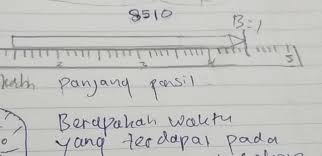 8510
B=1
2 3 4 5
panjang pensil
Berapakah waktu
yang terdapat pada